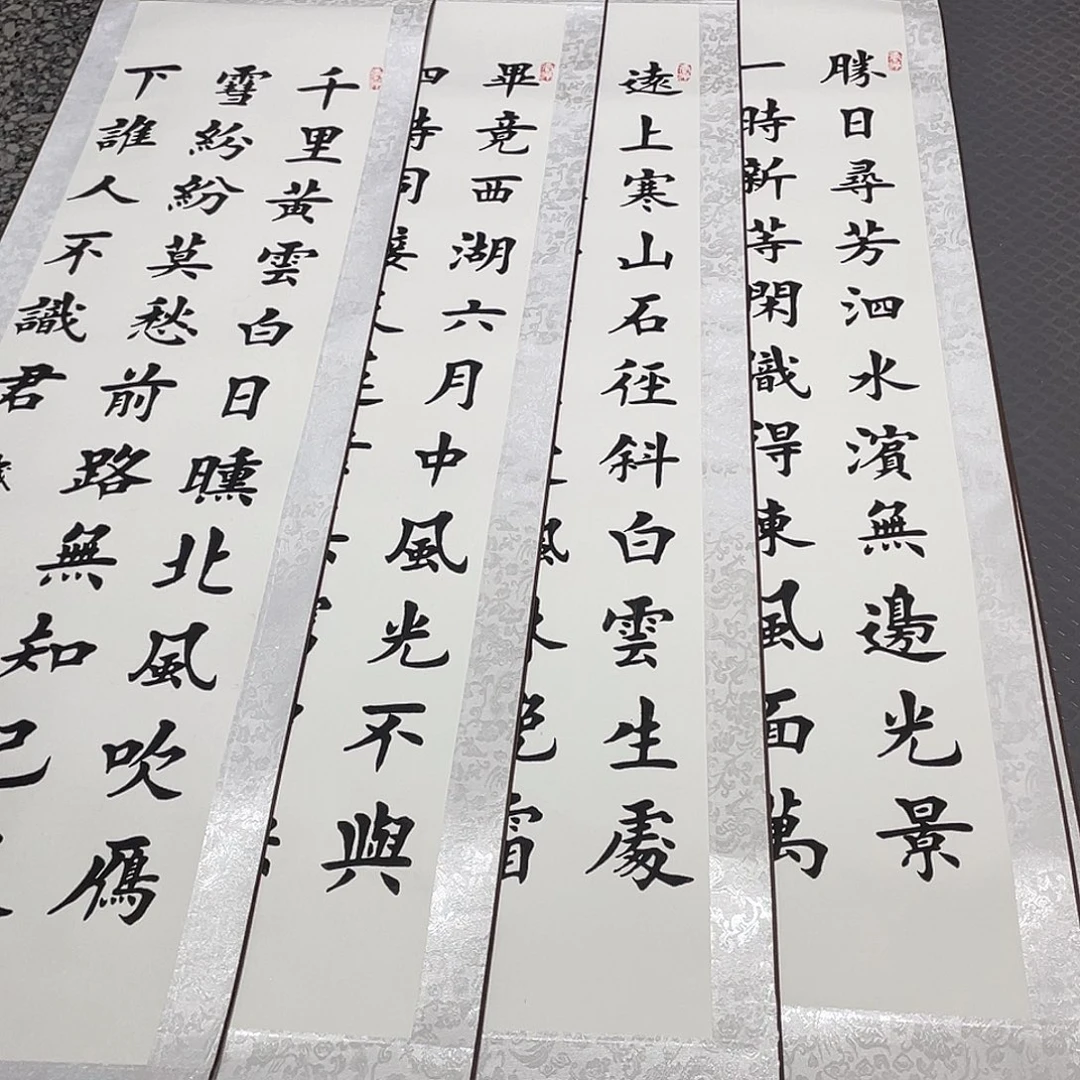 勝日尋芳泗水濱無邊光景
一時新等閑識得東風面萬
遠上寒山石徑斜白雲生處
畢竟西湖六月中風光不與
四時同接
千里黃雲白日曛北風吹雁
雪紛紛莫愁前路無知己
下誰人不識君